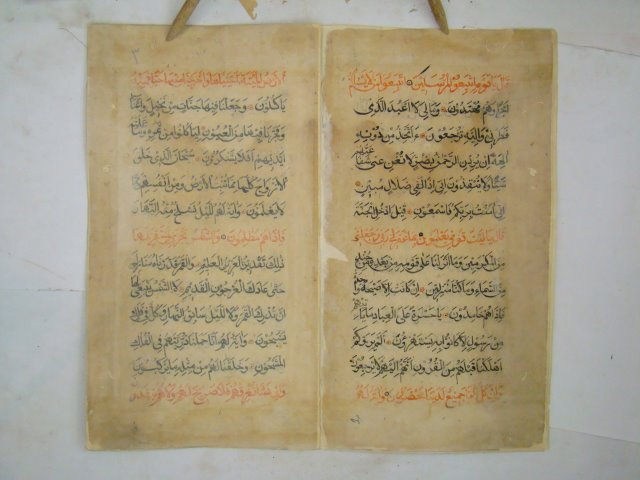 قال يا قوم اتبعوا المرسلين اتبعوا من لا يسئلكم
اجرا وهم مهتدون وما لي لا اعبد الذي
فطرني واليه ترجعون ءاتخذ من دونه
الهة ان يردن الرحمن بضر لا تغن عني شفاعتهم
شيئا ولا ينقذون اني اذا لفي ضلال مبين
اني امنت بربكم فاسمعون قيل ادخل الجنة
قال يا ليت قومي يعلمون بما غفر لي ربي وجعلني
من المكرمين وما انزلنا على قومه من بعده من جند
من السماء وما كنا منزلين ان كانت الا صيحة واحدة
فاذا هم خامدون يا حسرة على العباد ما ياتيهم
من رسول الا كانوا به يستهزؤن الم يروا كم
اهلكنا قبلهم من القرون انهم اليهم لا يرجعون
وان كل لما جميع لدينا محضرون واية لهم
الارض الميتة احييناها واخرجنا منها حبا فمنه
ياكلون وجعلنا فيها جنات من نخيل واعناب
وفجرنا فيها من العيون لياكلوا من ثمره وما عملته
ايديهم افلا يشكرون سبحان الذي خلق
الازواج كلها مما تنبت الارض ومن انفسهم ومما
لا يعلمون واية لهم الليل نسلخ منه النهار
فاذا هم مظلمون والشمس تجري لمستقر لها
ذلك تقدير العزيز العليم والقمر قدرناه منازل
حتى عاد كالعرجون القديم لا الشمس ينبغي لها
ان تدرك القمر ولا الليل سابق النهار وكل في فلك
يسبحون واية لهم انا حملنا ذريتهم في الفلك
المشحون وخلقنا لهم من مثله ما يركبون
وان نشا نغرقهم فلا صريخ لهم ولا هم ينقذون